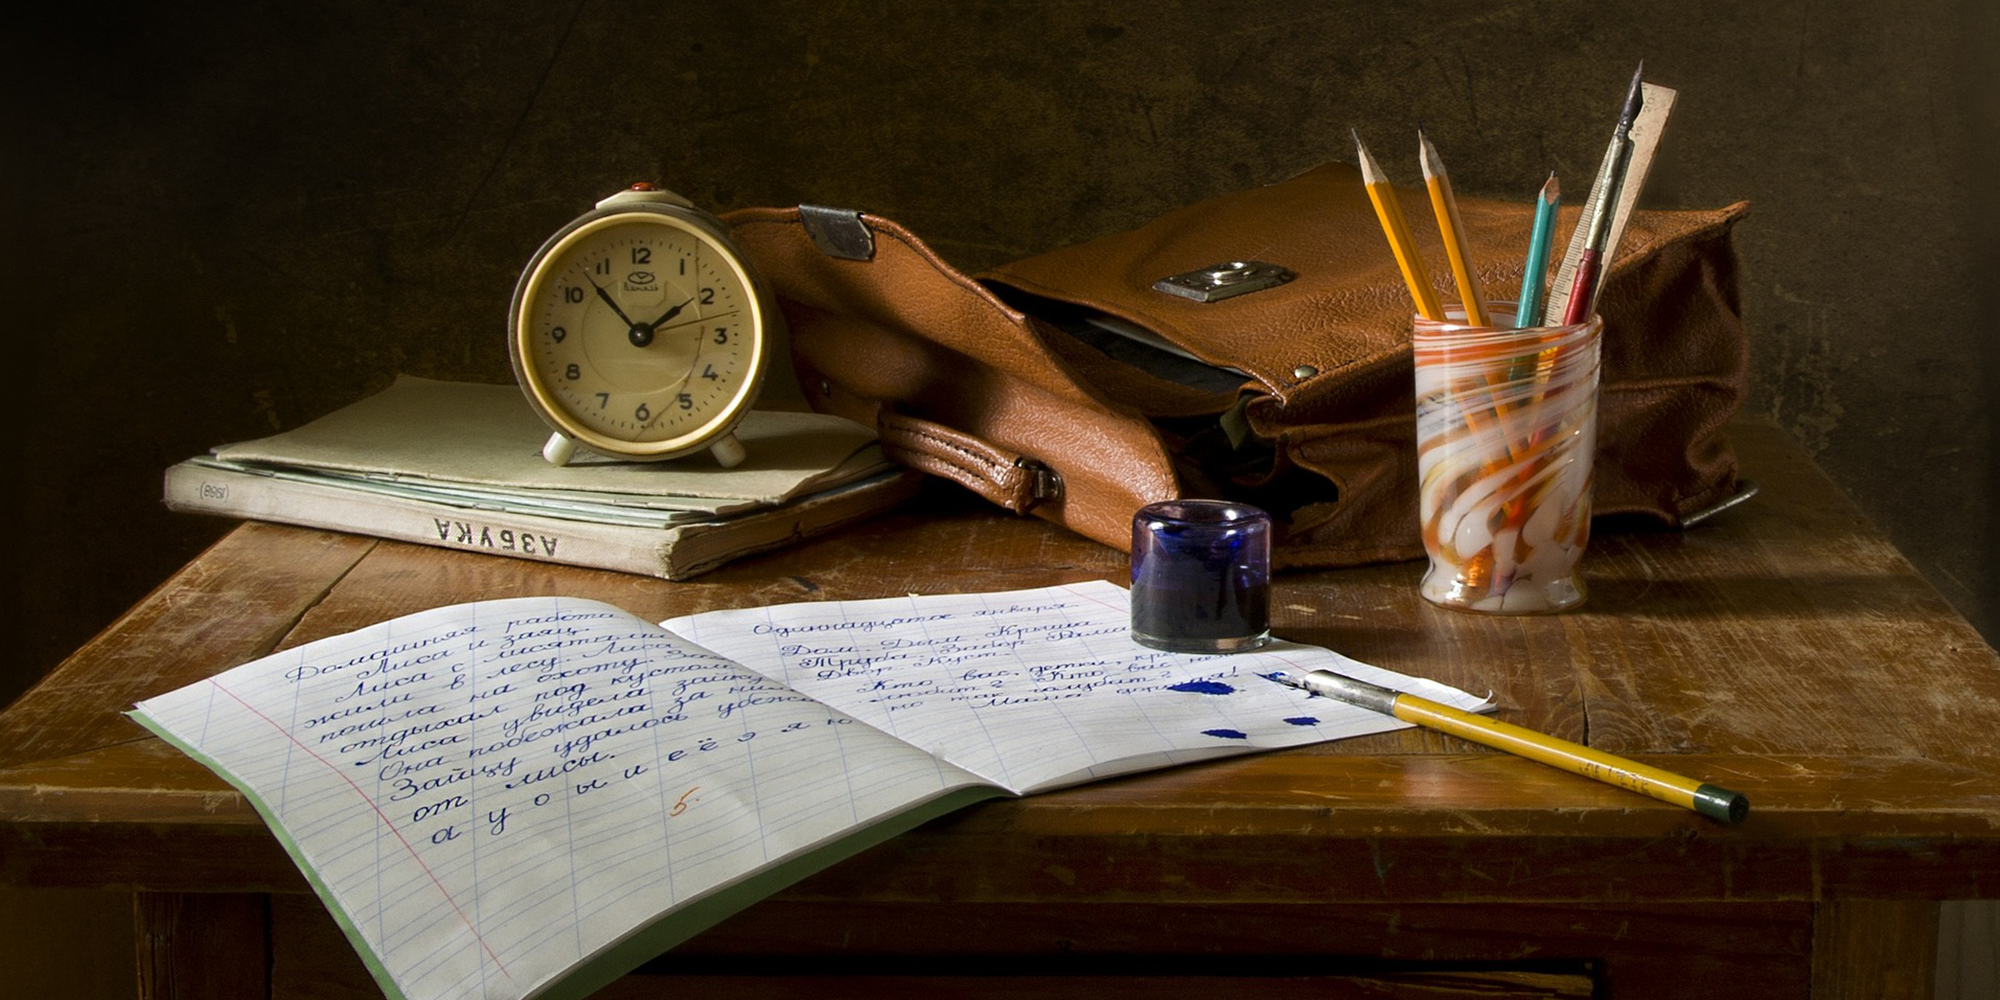 12
11 1
10 2
9 3
8 4
7 5
6
(1968)
АЗБУКА
Домашняя работа
Лиса и заяц.
Лиса с лисятами
жили в лесу. Лиса
пошла на охоту.
отдыхал под кустом.
Лиса увидела зайку
Она побежала за ним
Зайцу удалось убежать
от лисы.
а у о ы и е ё э я ю
5.
Одиннадцатое января.
Дом. Дым. Крыша.
Труба. Забор. Рама
Двор. Куст.
Кто вас, детки,
любит? Кто вас
так голубит?
Мама